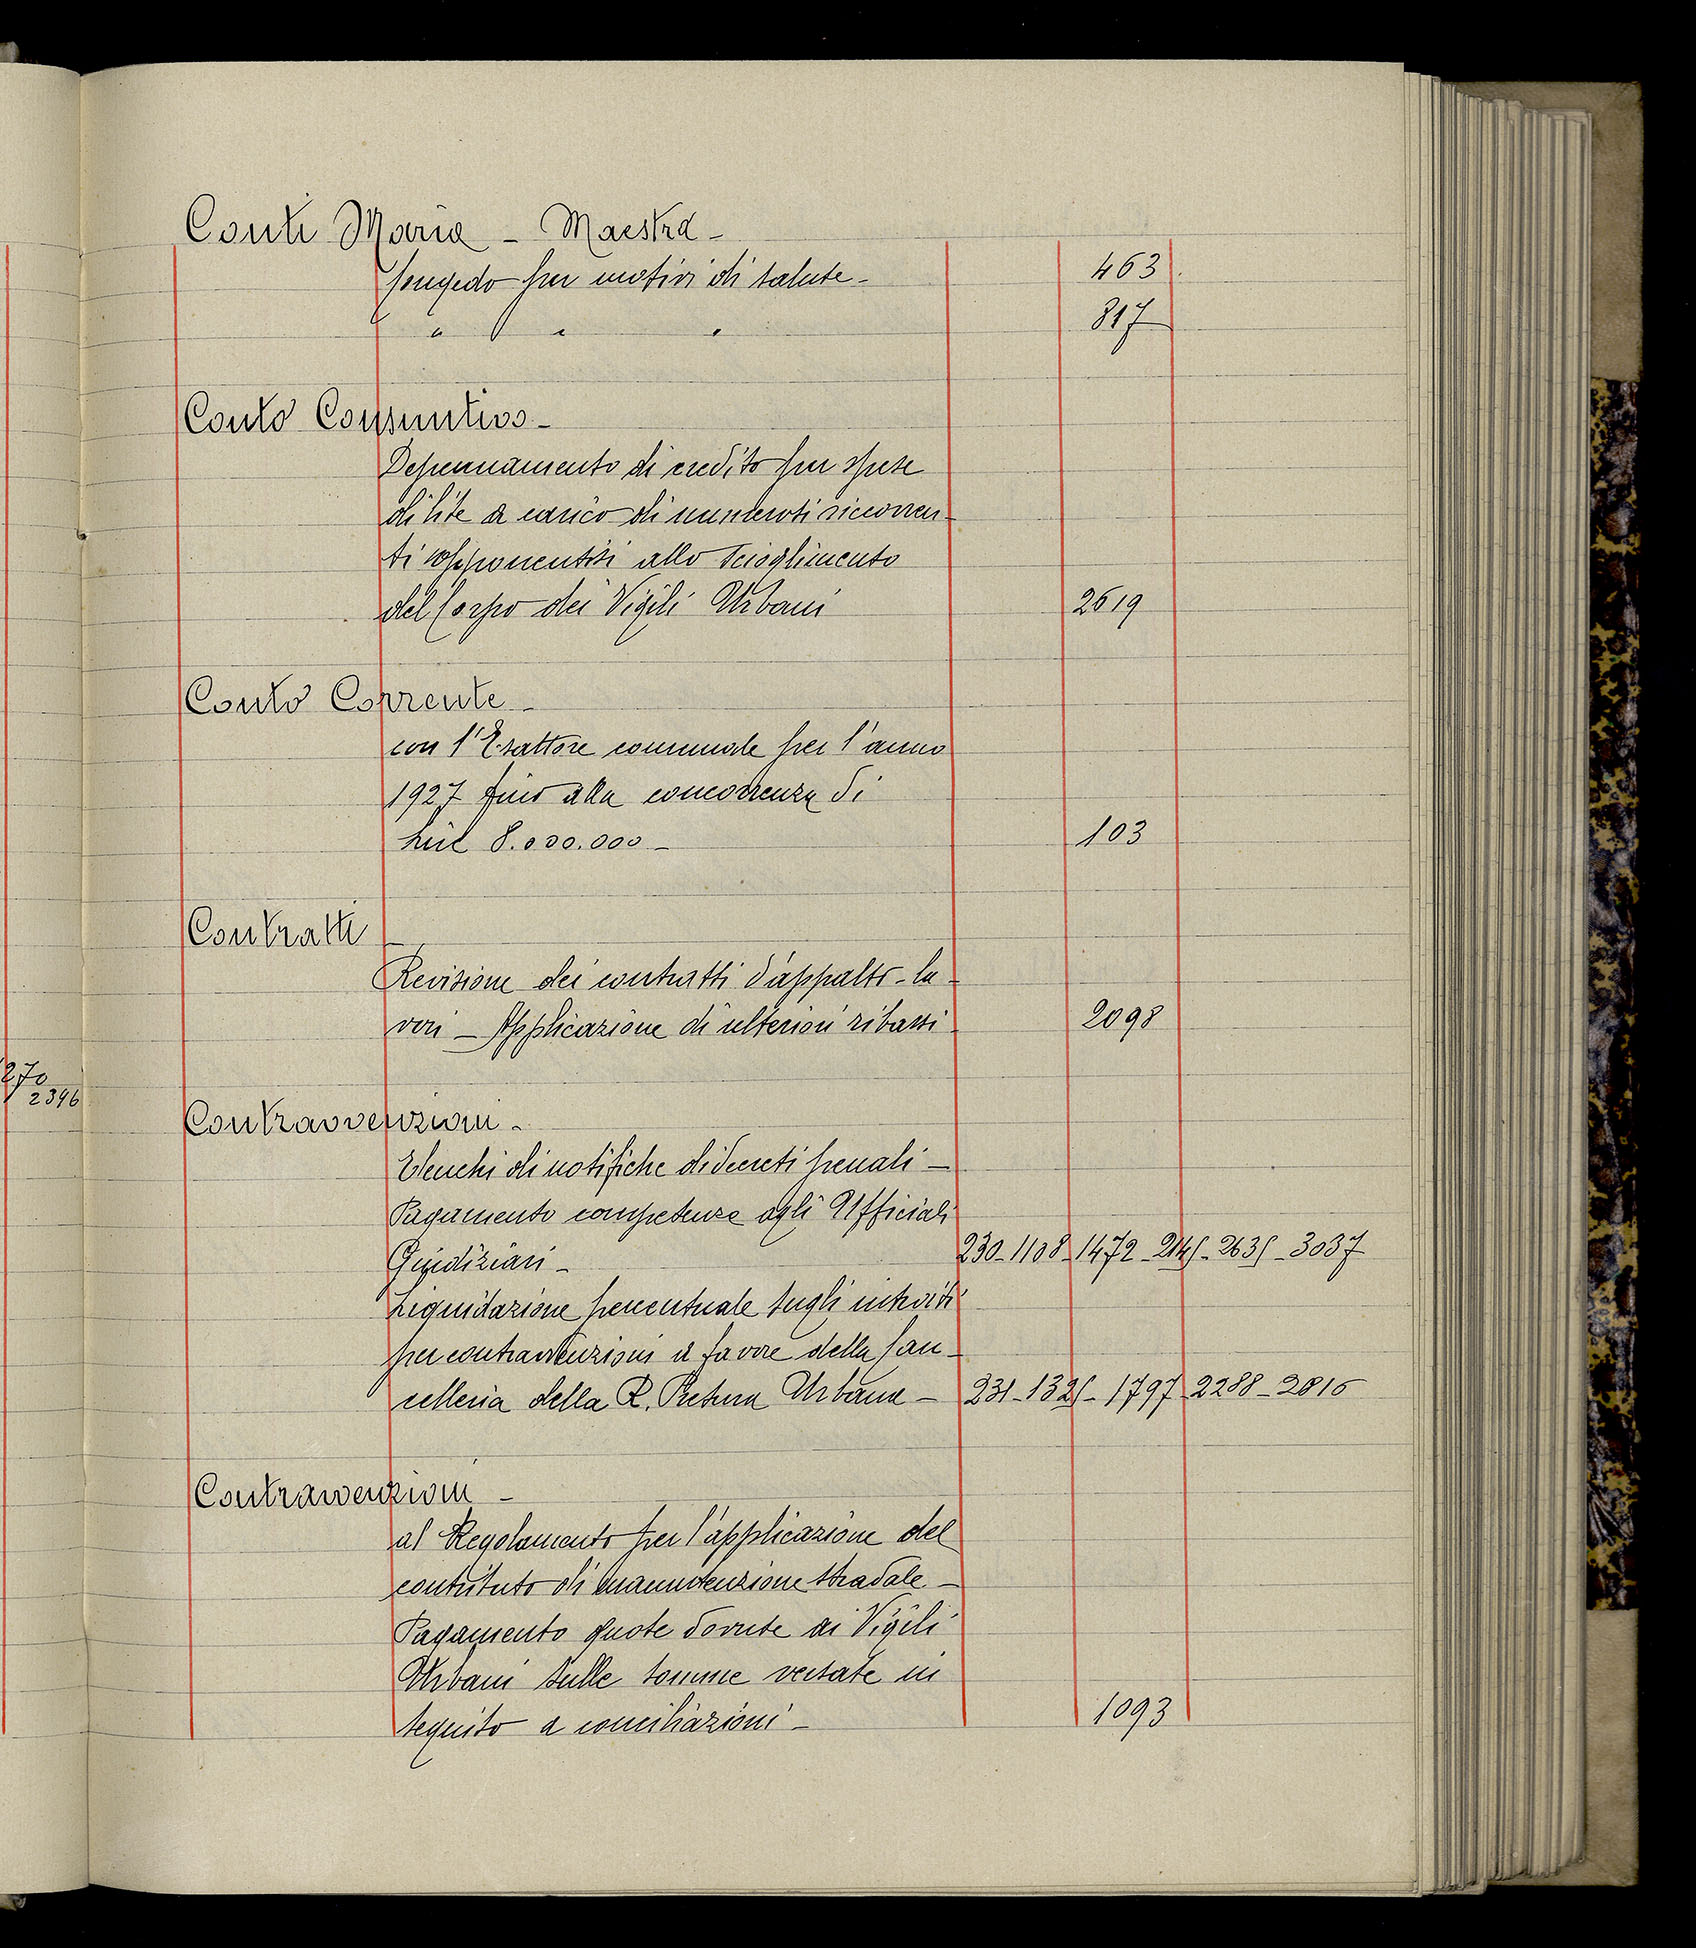 Conti Maria - Maestra -
Congedo per motivi di salute - 463
" " " 817
Conto Consuntivo -
Depennamento di credito per spese
di lite a carico di numerosi ricorren-
ti opponentisi allo scioglimento
del Corpo dei Vigili Urbani 2619
Conto Corrente -
con l'Esattore comunale per l'anno
1927 fino alla concorrenza di
Lire 8.000.000 - 103
Contratti -
Revisione dei contratti d'appalto - la-
vori - Applicazione di ulteriori ribassi - 2098
270
2346
Contravvenzioni -
Elenchi di notifiche di decreti penali -
Pagamento competenze agli Ufficiali
Giudiziari - 230 - 1108 - 1472 - 2145 - 2635 - 3037
Liquidazione percentuale sugli introiti
per contravvenzioni a favore della Can-
celleria della R. Pretura Urbana - 231 - 1325 - 1797 - 2288 - 2816
Contravvenzioni -
al Regolamento per l'applicazione del
contributo di manutenzione stradale -
Pagamento quote dovute ai Vigili
Urbani sulle somme versate in
seguito a conciliazioni - 1093